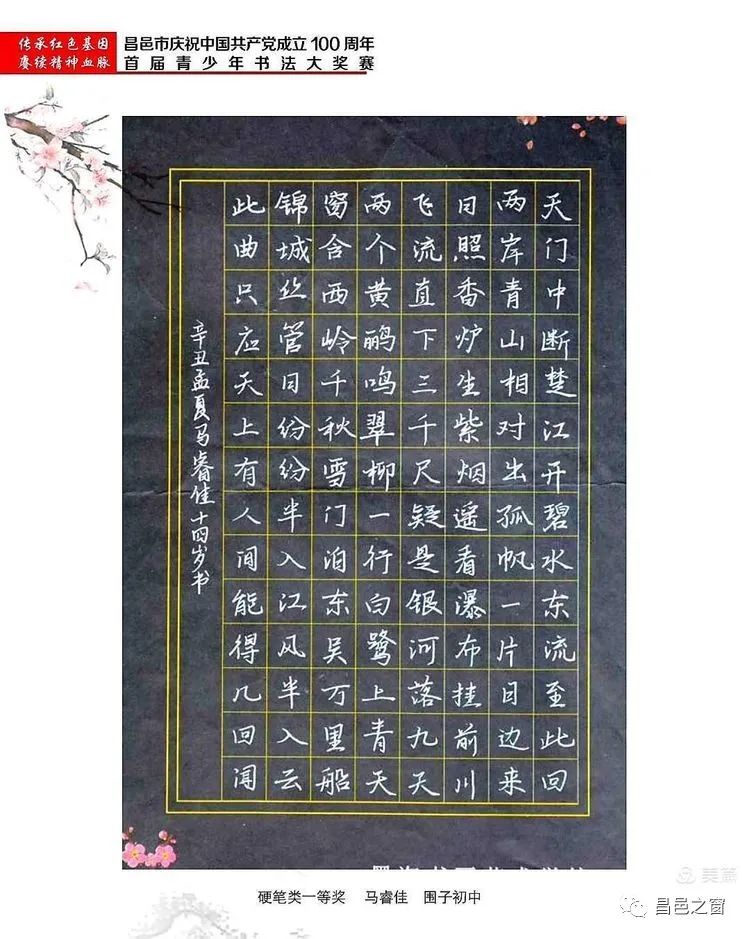 传承红色基因
赓续精神血脉
昌邑市庆祝中国共产党成立100周年
首届青少年书法大奖赛
天门中断楚江开碧水东流至此回
两岸青山相对出孤帆一片日边来
日照香炉生紫烟遥看瀑布挂前川
飞流直下三千尺疑是银河落九天
两个黄鹂鸣翠柳一行白鹭上青天
窗含西岭千秋雪门泊东吴万里船
锦城丝管日纷纷半入江风半入云
此曲只应天上有人间能得几回闻
辛丑孟夏马睿佳十四岁书
硬笔类一等奖 马睿佳 围子初中
美篇
昌邑之窗